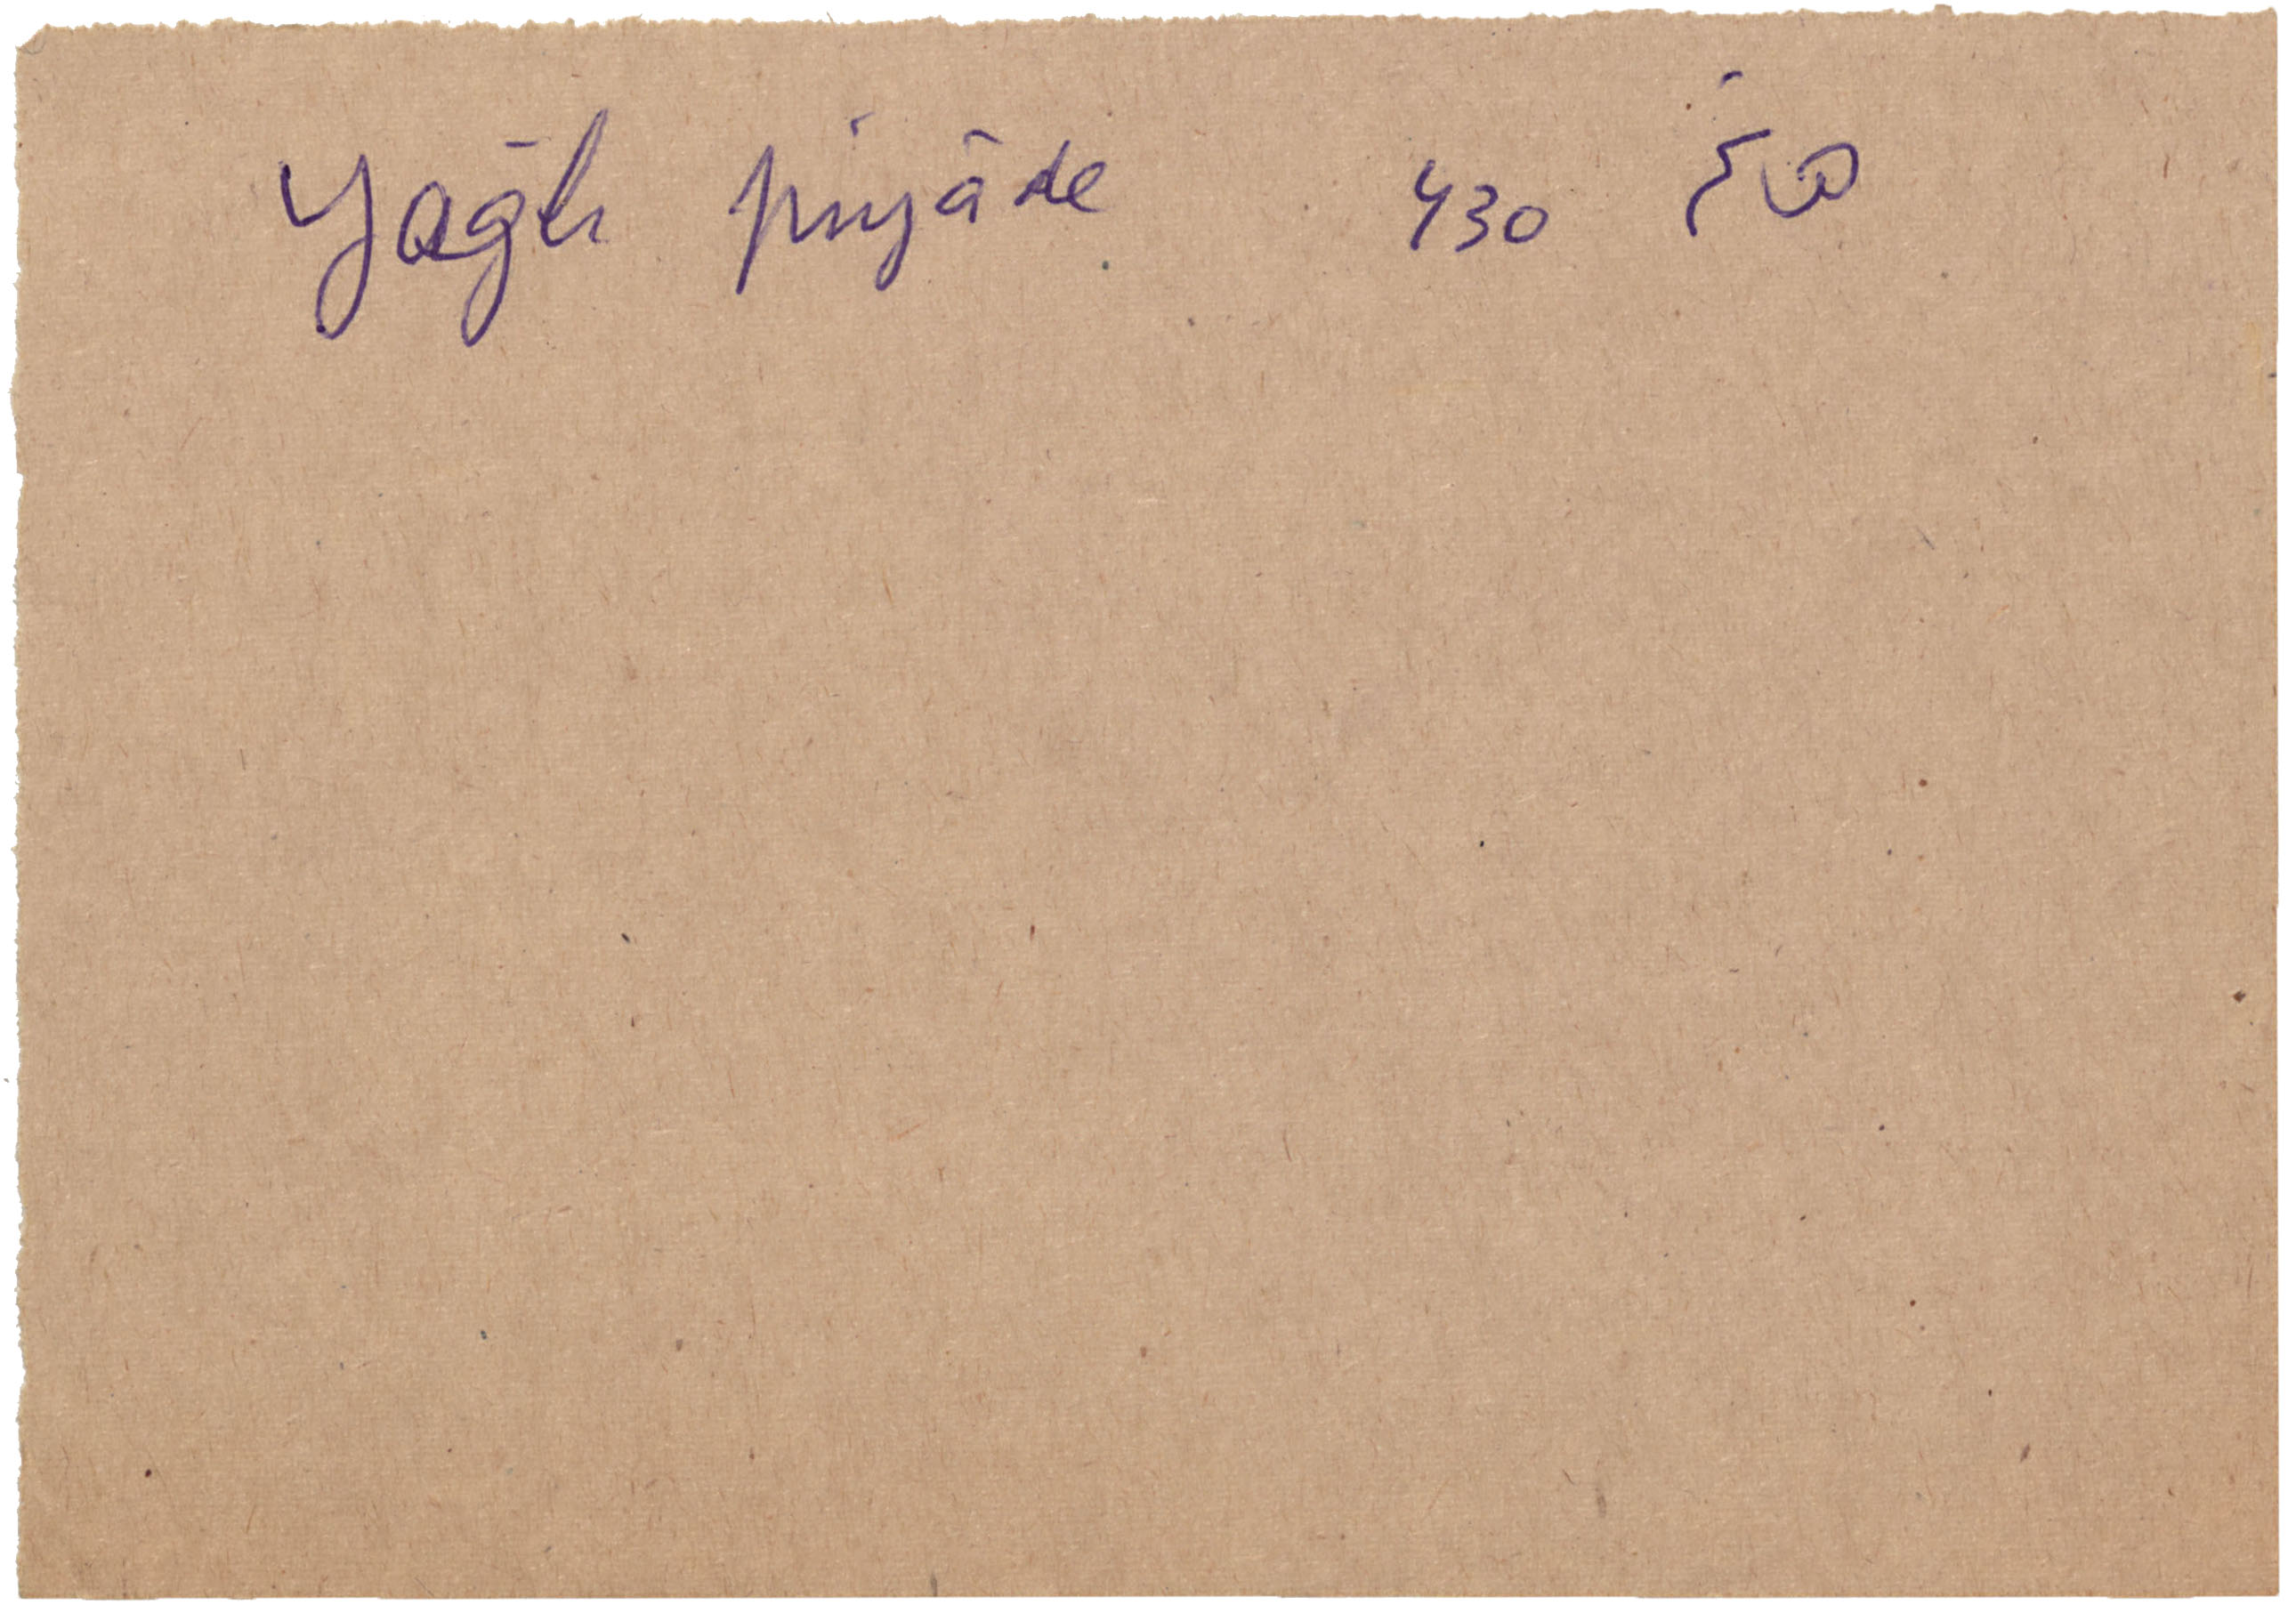 Yağlı piyâde 430